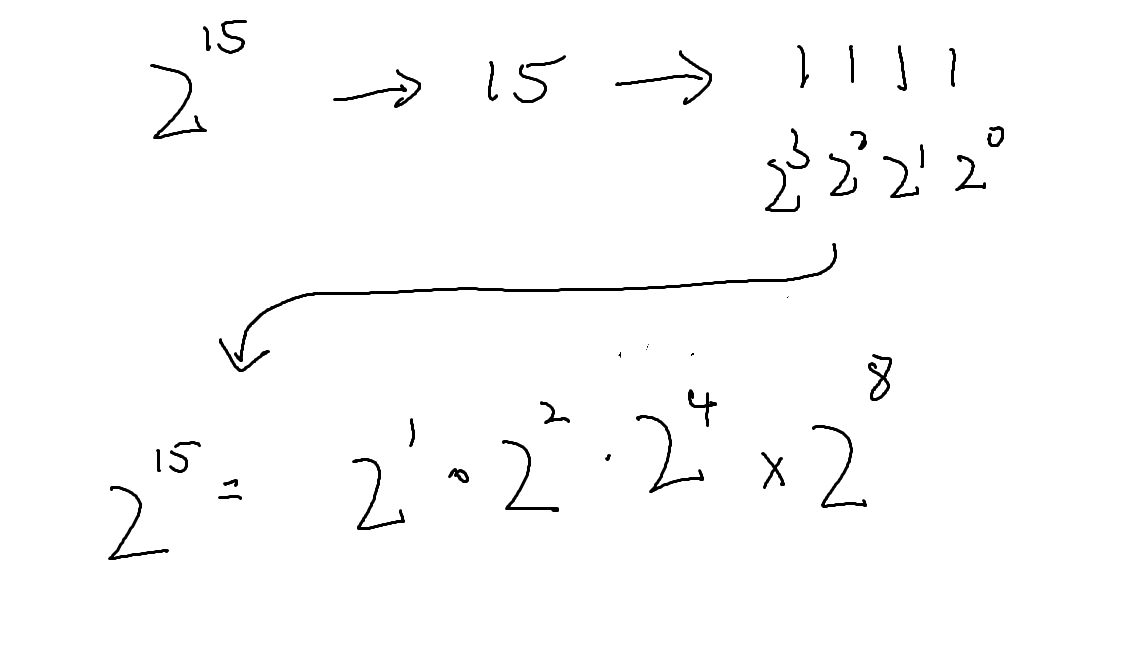 2^15 → 15 → 1 1 1 1
2^3 2^2 2^1 2^0
2^15 = 2^1 · 2^2 · 2^4 × 2^8